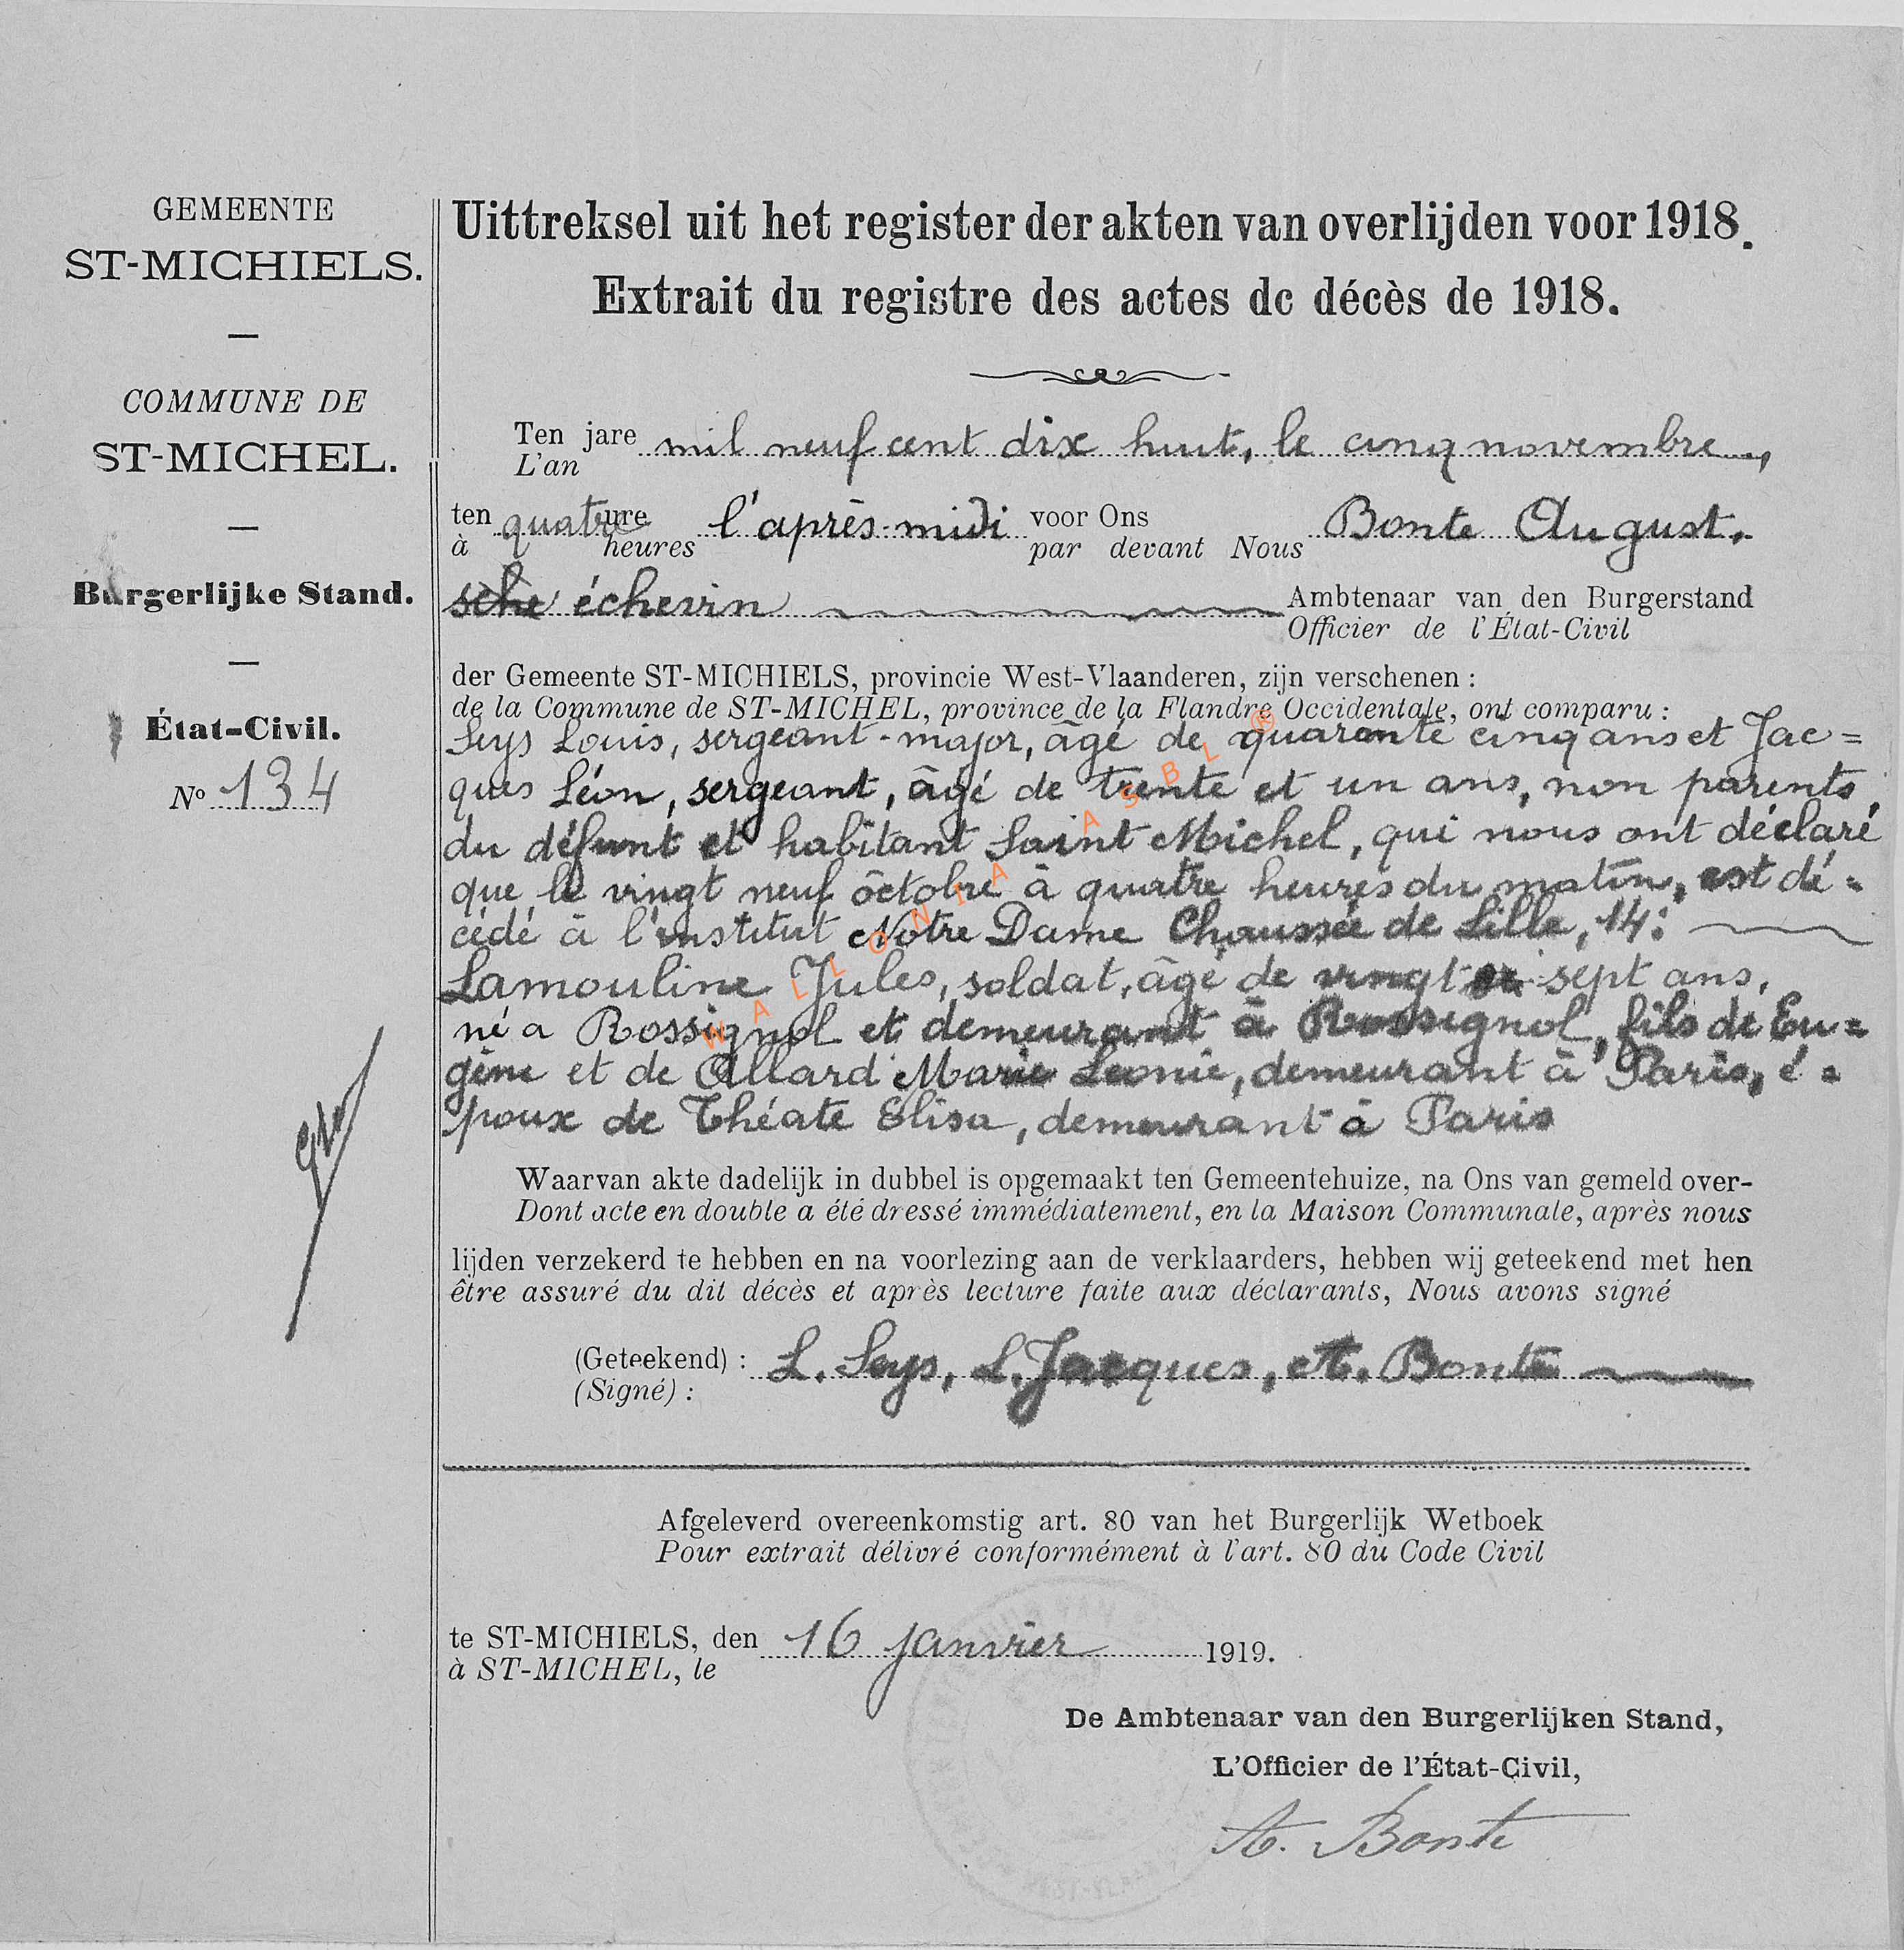 GEMEENTE
ST-MICHIELS.
COMMUNE DE
ST-MICHEL.
Burgerlijke Stand.
État-Civil.
No 134
Uittreksel uit het register der akten van overlijden voor 1918.
Extrait du registre des actes de décès de 1918.
Ten jare mil neuf cent dix huit, le cinq novembre,
L'an
ten quatre ure l'après-midi voor Ons Bonte August.
à heures par devant Nous
sche échevin Ambtenaar van den Burgerstand
Officier de l'État-Civil
der Gemeente ST-MICHIELS, provincie West-Vlaanderen, zijn verschenen :
de la Commune de ST-MICHEL, province de la Flandre Occidentale, ont comparu :
Seys Louis, sergeant-major, âgé de quarante cinq ans et Jac=
ques Léon, sergeant, âgé de trente et un ans, non parents,
du défunt et habitant Saint Michel, qui nous ont déclaré
que le vingt neuf octobre à quatre heures du matin, est dé=
cédé à l'institut Notre Dame Chaussée de Lille, 14:
Lamouline Jules, soldat, âgé de vingt sept ans,
né a Rossignol et demeurant à Rossignol, fils de Eu=
gène et de Allard Marie Leonie, demeurant à Paris, é=
poux de Théate Elisa, demeurant à Paris
Waarvan akte dadelijk in dubbel is opgemaakt ten Gemeentehuize, na Ons van gemeld over-
Dont acte en double a été dressé immédiatement, en la Maison Communale, après nous
lijden verzekerd te hebben en na voorlezing aan de verklaarders, hebben wij geteekend met hen
être assuré du dit décès et après lecture faite aux déclarants, Nous avons signé
(Geteekend) : L. Seys, L. Jacques, A. Bonte
(Signé) :
Afgeleverd overeenkomstig art. 80 van het Burgerlijk Wetboek
Pour extrait délivré conformément à l'art. 80 du Code Civil
te ST-MICHIELS, den 16 janvier 1919.
à ST-MICHEL, le
De Ambtenaar van den Burgerlijken Stand,
L'Officier de l'État-Civil,
A. Bonte
WALLONIA ASBL ®